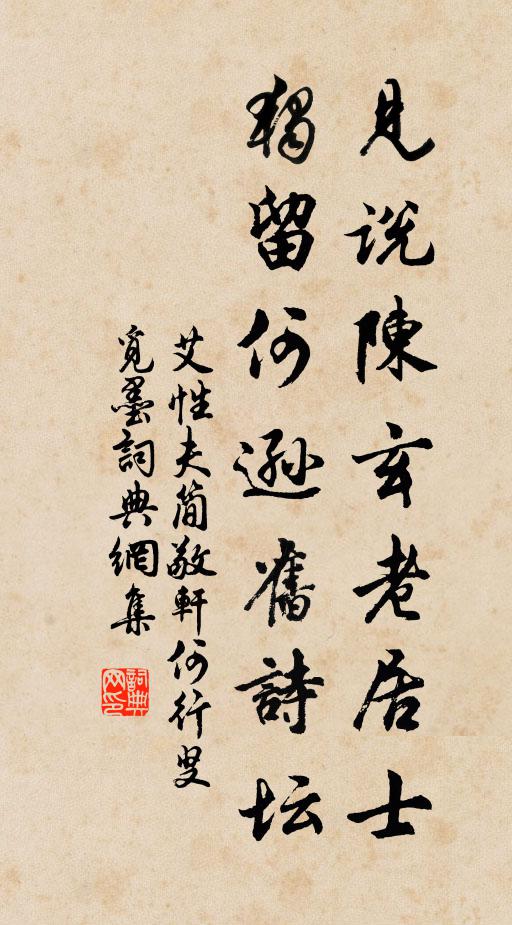 見説陳玄老居士
獨留何遜舊詩坛
艾性夫簡敬軒何行叟
覓墨詞典網集
詞典网印